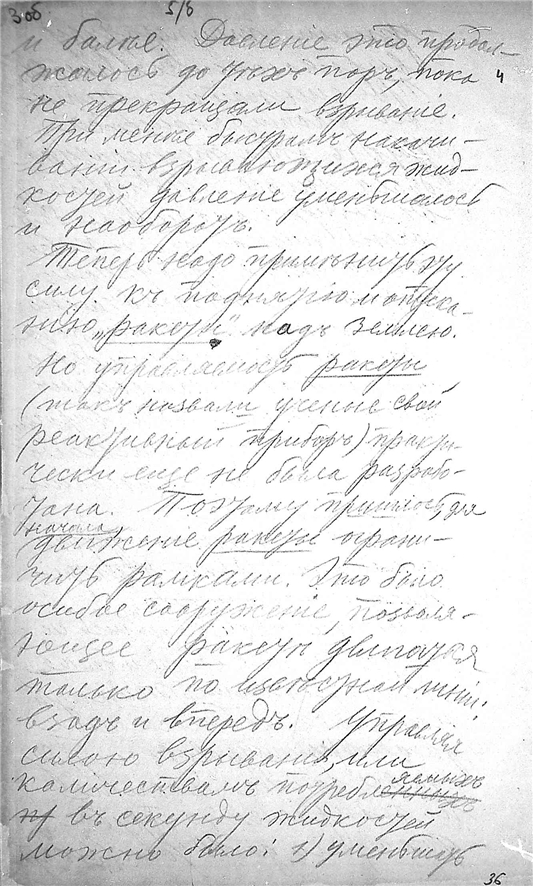 3об 5/8
и более. Давленіе это продол-
жалось до тѣхъ поръ, пока 4
не прекращали взрываніе.
При менѣе быстромъ накачи-
ваніи взрывающихся жид-
костей давленіе уменьшалось
и наоборотъ.
Теперь надо примѣнить эту
силу къ поднятію и опуска-
нію „ракеты" надъ землею.
Но управляемость ракеты
(такъ назвали ученые свой
реактивный приборъ) практи-
чески еще не была разрабо-
тана. Поэтому пришлось для
начала
движеніе ракеты ограни-
чить рамками. Это было
особое сооруженіе, позволя-
ющее ракетѣ двигаться
только по извѣстной линіи:
взадъ и впередъ. Управляя
силою взрыванія, или
количествомъ потребляемыхъ
въ секунду жидкостей
можно было: 1) уменьшать
36